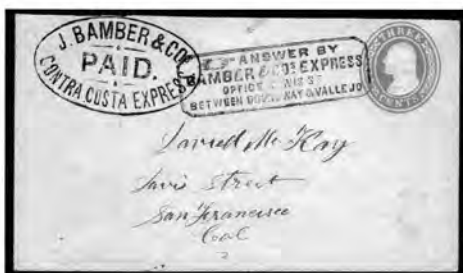 J. BAMBER & CO'S
PAID.
CONTRA COSTA EXPRESS
ANSWER BY
BAMBER & CO'S EXPRESS
OFFICE DAVIS ST
BETWEEN BROADWAY & VALLEJO
THREE
CENTS
McKay
Davis Street
San Francisco
Cal